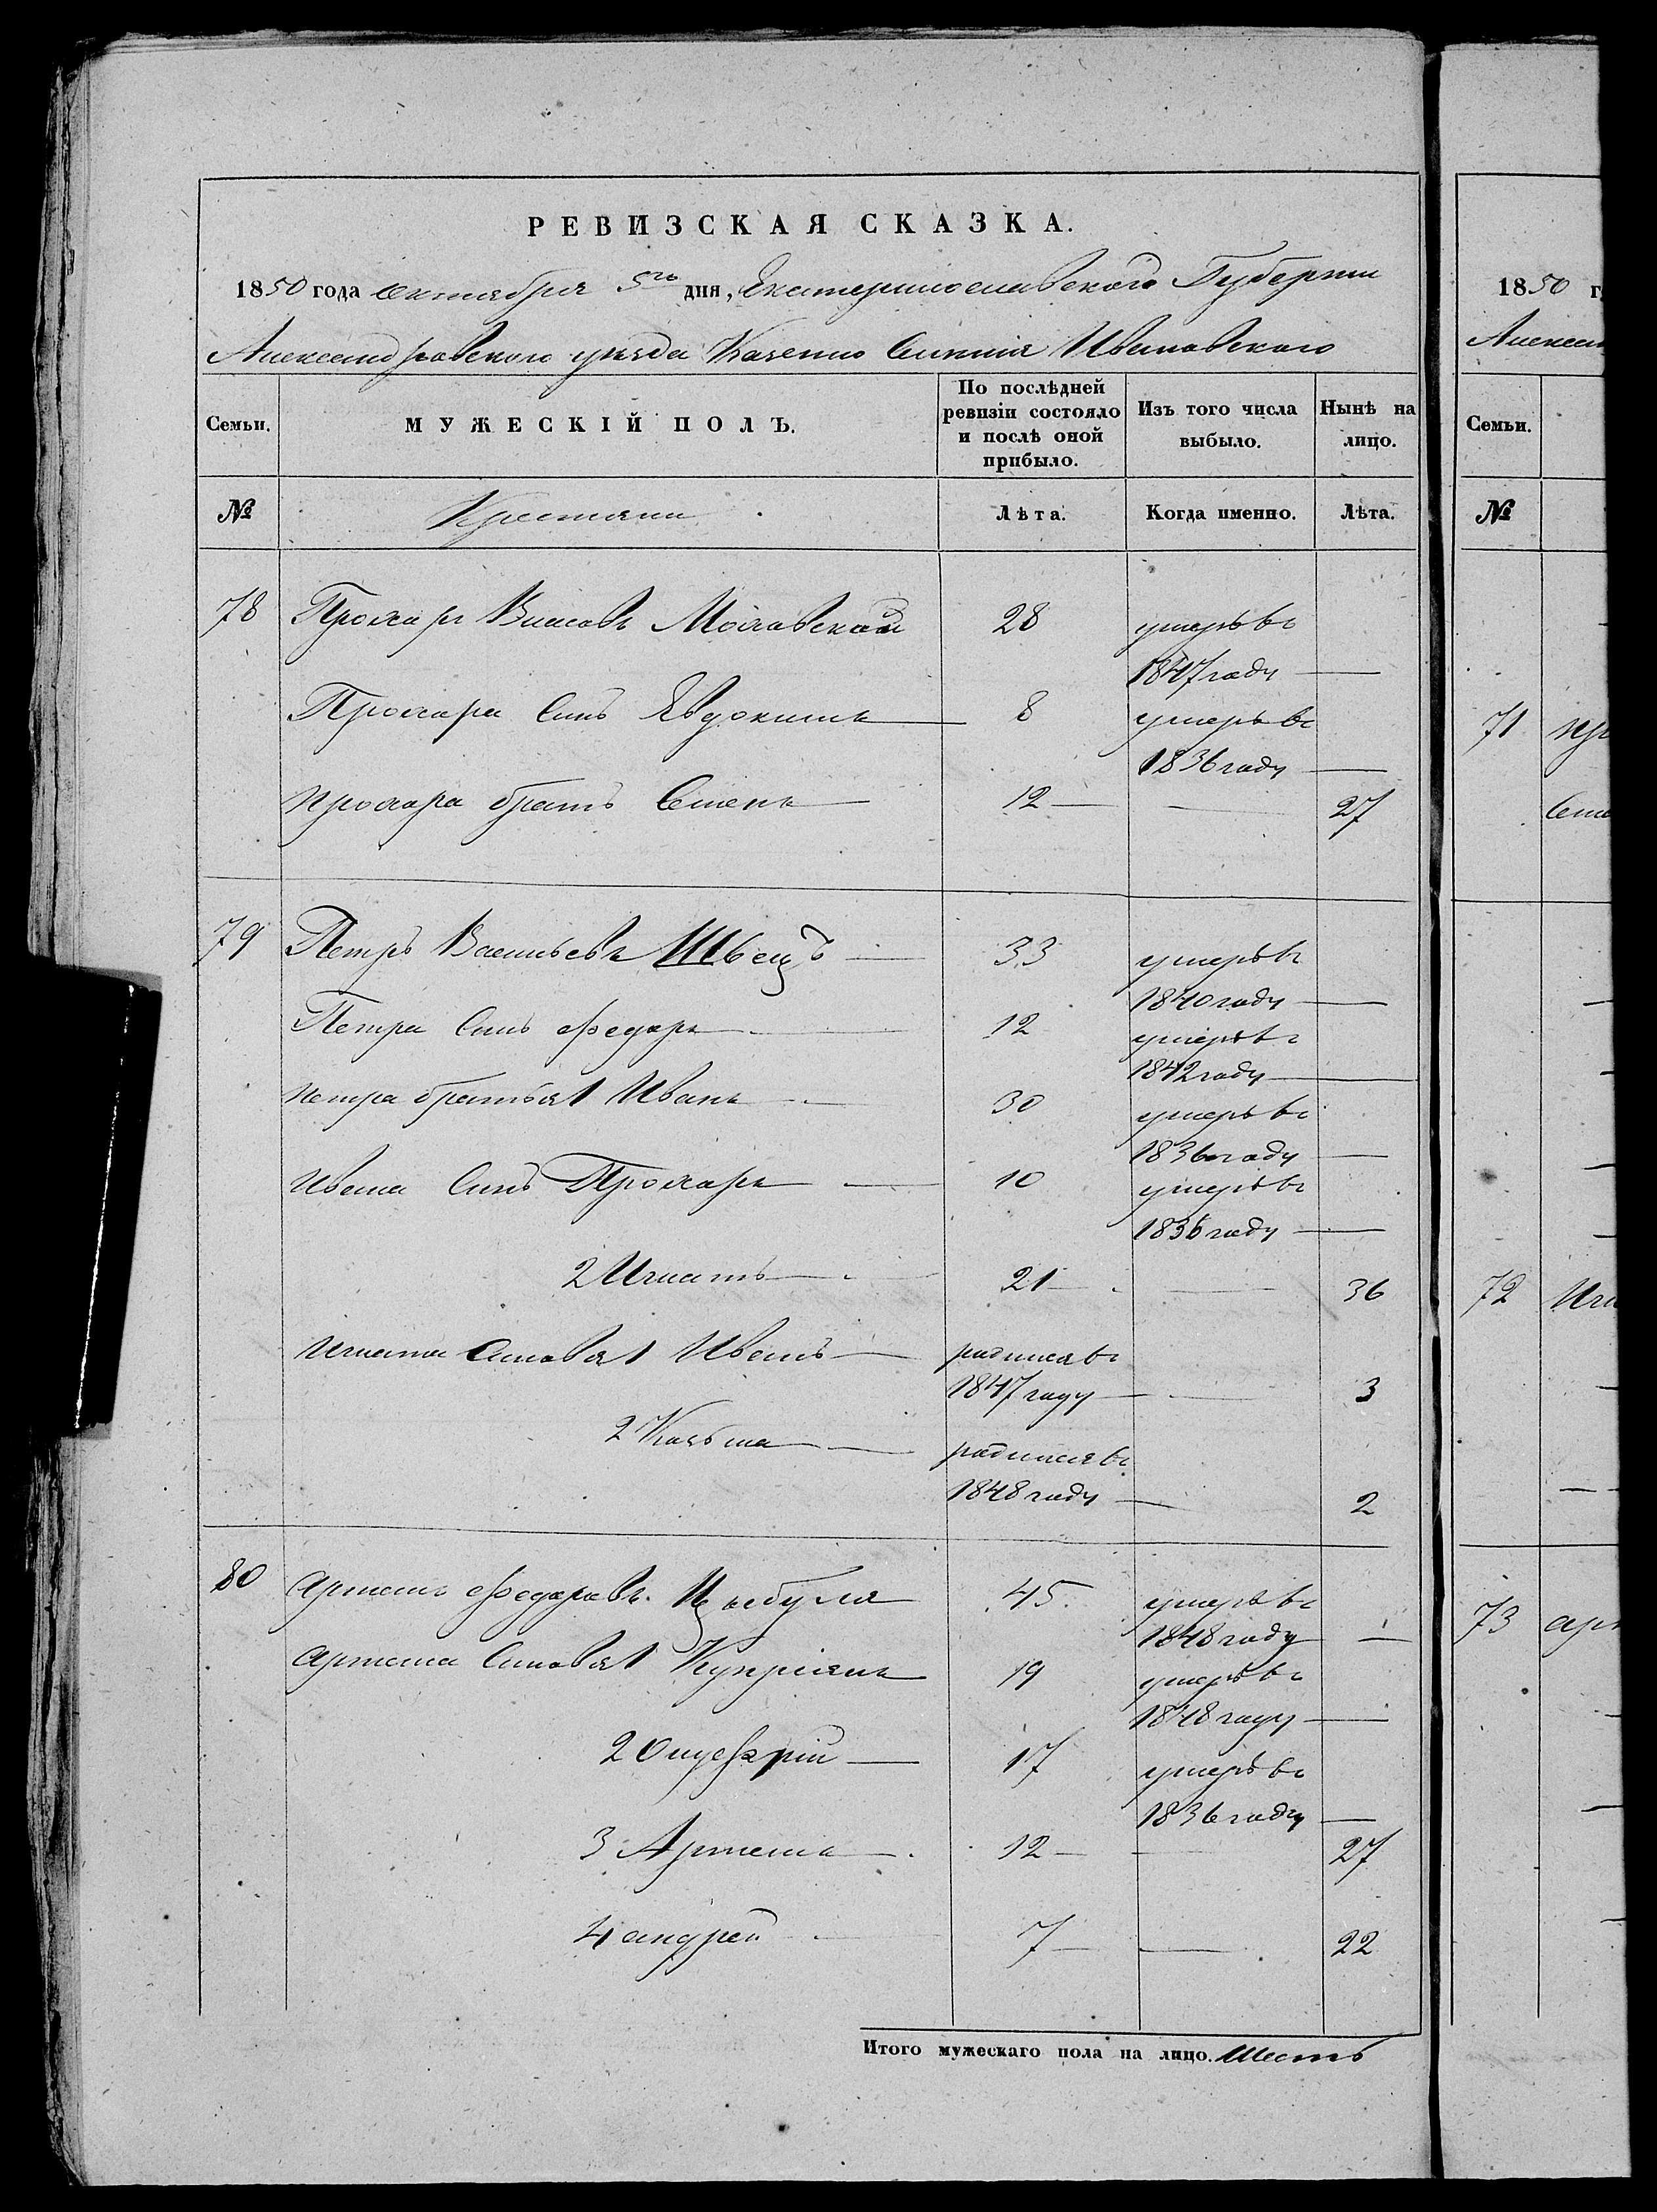 РЕВИЗСКАЯ СКАЗКА.
1850 года октября 5го дня, Екатеринославского Губернии
Александровского уезда Казенно Селения Ивановского
Семьи. МУЖЕСКІЙ ПОЛЪ. По послѣдней ревизіи состояло и послѣ оной прибыло. Изъ того числа выбыло. Нынѣ на лицо.
№ Крестяни Лѣта. Когда именно. Лѣта.
78 Прохаръ Власовъ 28 умеръ въ
1847 году —
Прохара Синъ Явдокимъ — 8 умеръ въ
1836 году —
прохара братъ Семенъ — 12 — — 27
79 Петръ Васильевъ Швецъ — 33 умеръ въ
1840 году —
Петра Синъ Федоръ — 12 умеръ въ
1842 году —
петра братья 1 Иванъ — 30 умеръ въ
1836 году —
Ивана Синъ Прохаръ — 10 умеръ въ
1836 году —
2 Игнатъ — 21 — — 36
Игната Синовя 1 Иванъ — радился въ
1847 году — — 3
2 Козьма — радился въ
1848 году — 2
80 Артемъ Федоровъ Цыбуля 45 умеръ въ
1848 году —
Артема Синовя 1 Купріянъ 19 умеръ въ
1848 году —
2 Онуфрій — 17 умеръ въ
1836 году —
3 Артемъ — 12 — — 27
4 андрей — 7 — — 22
Итого мужескаго пола на лицо. Шесть
1850 г
Алексан
Семьи.
№
71
72
73